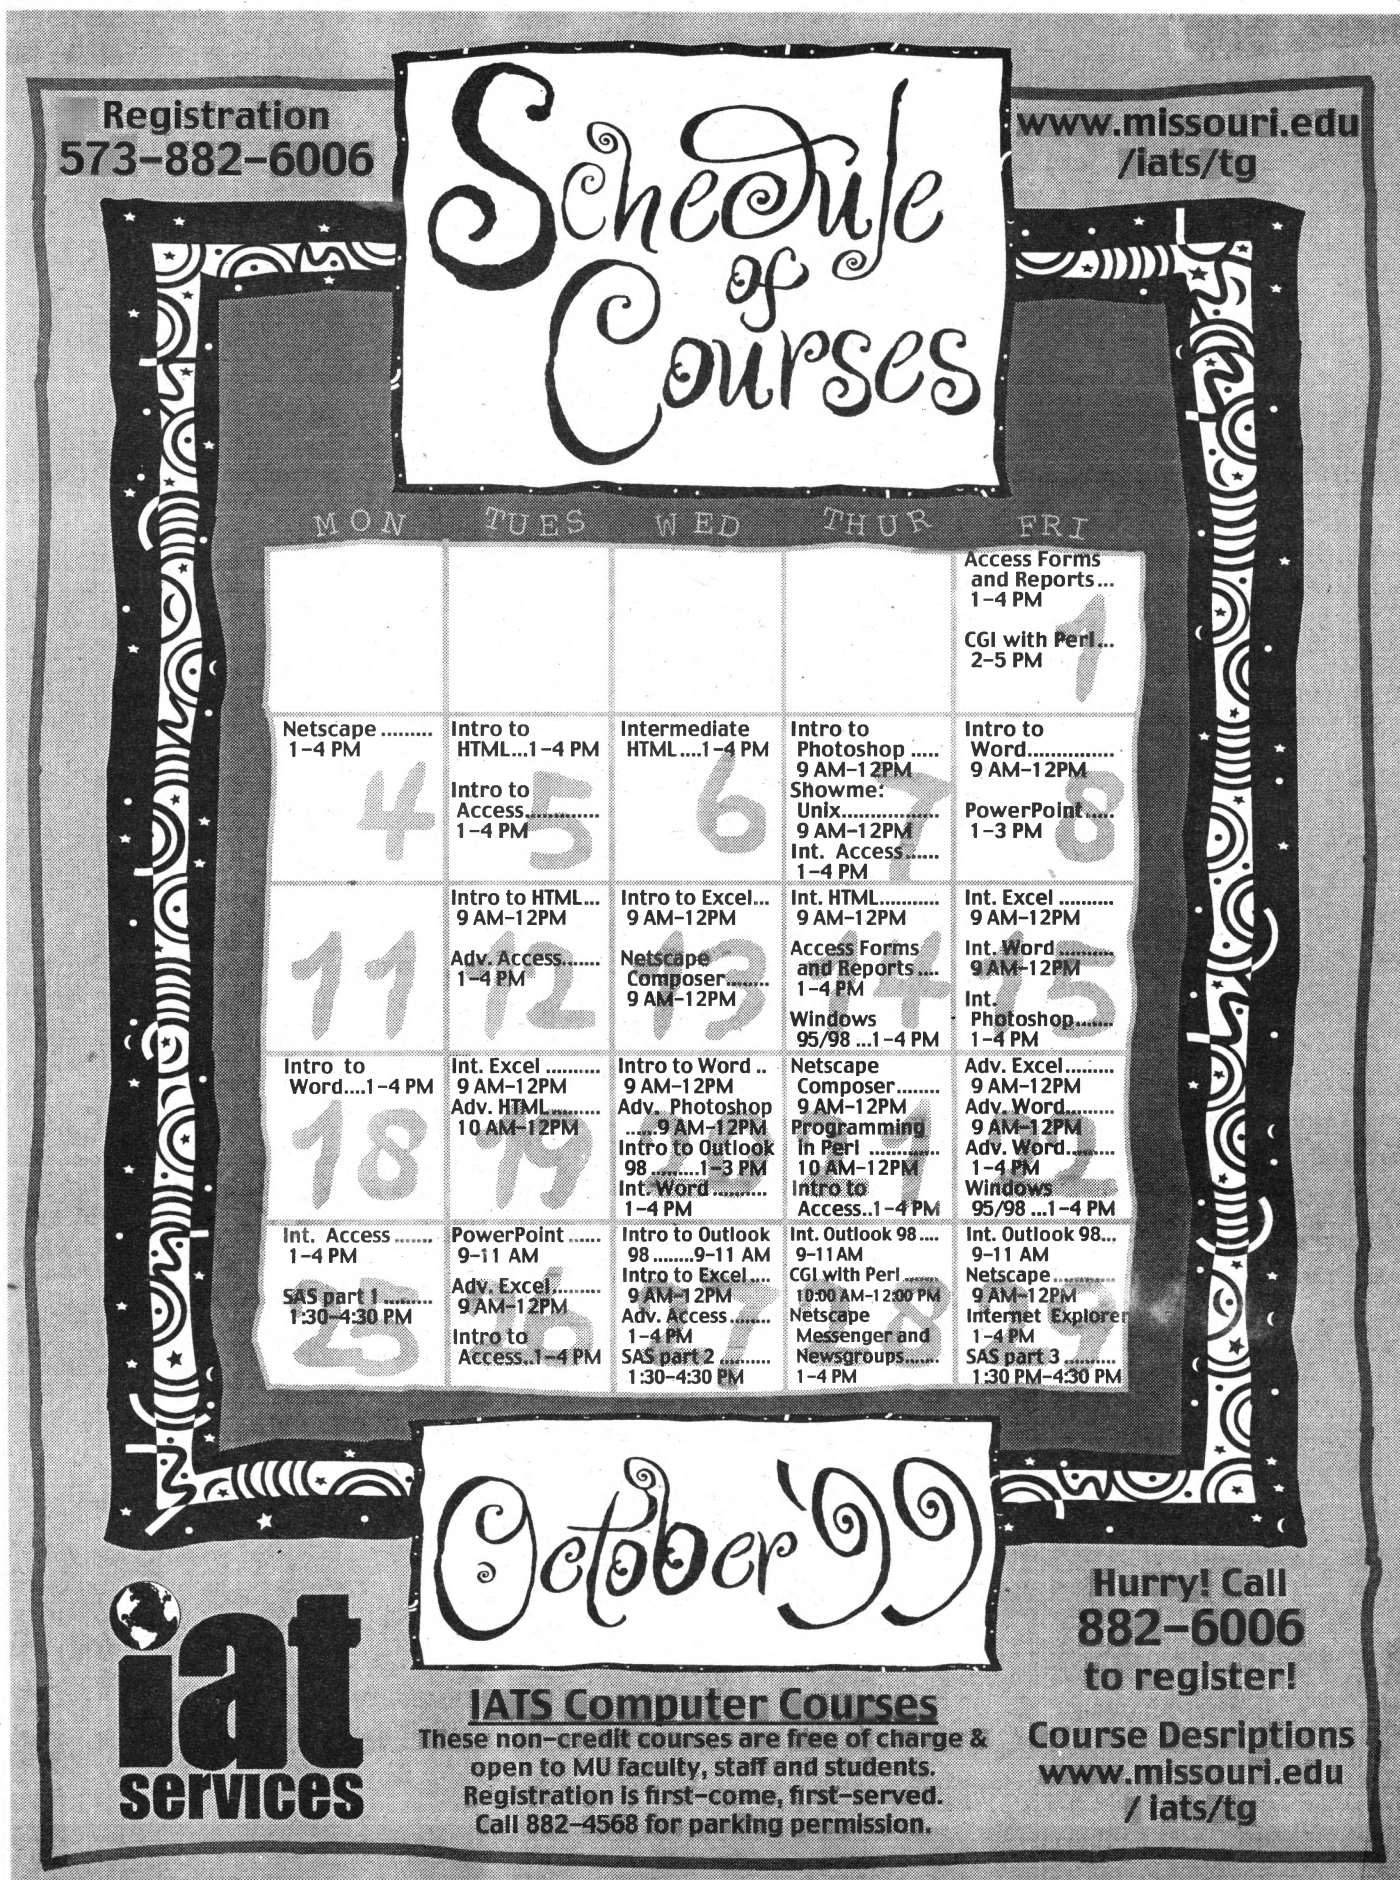 Registration
573-882-6006
Schedule
of
Courses
www.missouri.edu
/iats/tg
MON TUES WED THUR FRI
Access Forms
and Reports...
1-4 PM
CGI with Perl...
2-5 PM
1
Netscape .........
1-4 PM
4
Intro to
HTML...1-4 PM
Intro to
Access..............
1-4 PM
5
Intermediate
HTML ....1-4 PM
6
Intro to
Photoshop .....
9 AM-12PM
Showme:
Unix..................
9 AM-12PM
Int. Access......
1-4 PM
7
Intro to
Word................
9 AM-12PM
PowerPoint.....
1-3 PM
8
11
Intro to HTML...
9 AM-12PM
Adv. Access.......
1-4 PM
12
Intro to Excel...
9 AM-12PM
Netscape
Composer........
9 AM-12PM
13
Int. HTML...........
9 AM-12PM
Access Forms
and Reports ....
1-4 PM
Windows
95/98 ...1-4 PM
14
Int. Excel ..........
9 AM-12PM
Int. Word ..........
9 AM-12PM
Int.
Photoshop.......
1-4 PM
15
Intro to
Word....1-4 PM
18
Int. Excel ..........
9 AM-12PM
Adv. HTML.........
10 AM-12PM
19
Intro to Word ..
9 AM-12PM
Adv. Photoshop
......9 AM-12PM
Intro to Outlook
98 .........1-3 PM
Int. Word ..........
1-4 PM
20
Netscape
Composer........
9 AM-12PM
Programming
in Perl .............
10 AM-12PM
Intro to
Access..1-4 PM
21
Adv. Excel.........
9 AM-12PM
Adv. Word.........
9 AM-12PM
Adv. Word.........
1-4 PM
Windows
95/98 ...1-4 PM
22
Int. Access .......
1-4 PM
SAS part 1 .........
1:30-4:30 PM
25
PowerPoint ......
9-11 AM
Adv. Excel.........
9 AM-12PM
Intro to
Access..1-4 PM
26
Intro to Outlook
98 ........9-11 AM
Intro to Excel....
9 AM-12PM
Adv. Access........
1-4 PM
SAS part 2 ..........
1:30-4:30 PM
27
Int. Outlook 98....
9-11AM
CGI with Perl .......
10:00 AM-12:00 PM
Netscape
Messenger and
Newsgroups.......
1-4 PM
28
Int. Outlook 98...
9-11 AM
Netscape............
9 AM-12PM
Internet Explorer
1-4 PM
SAS part 3 ..........
1:30 PM-4:30 PM
29
October '99
iat
services
IATS Computer Courses
These non-credit courses are free of charge &
open to MU faculty, staff and students.
Registration is first-come, first-served.
Call 882-4568 for parking permission.
Hurry! Call
882-6006
to register!
Course Desriptions
www.missouri.edu
/ iats/tg